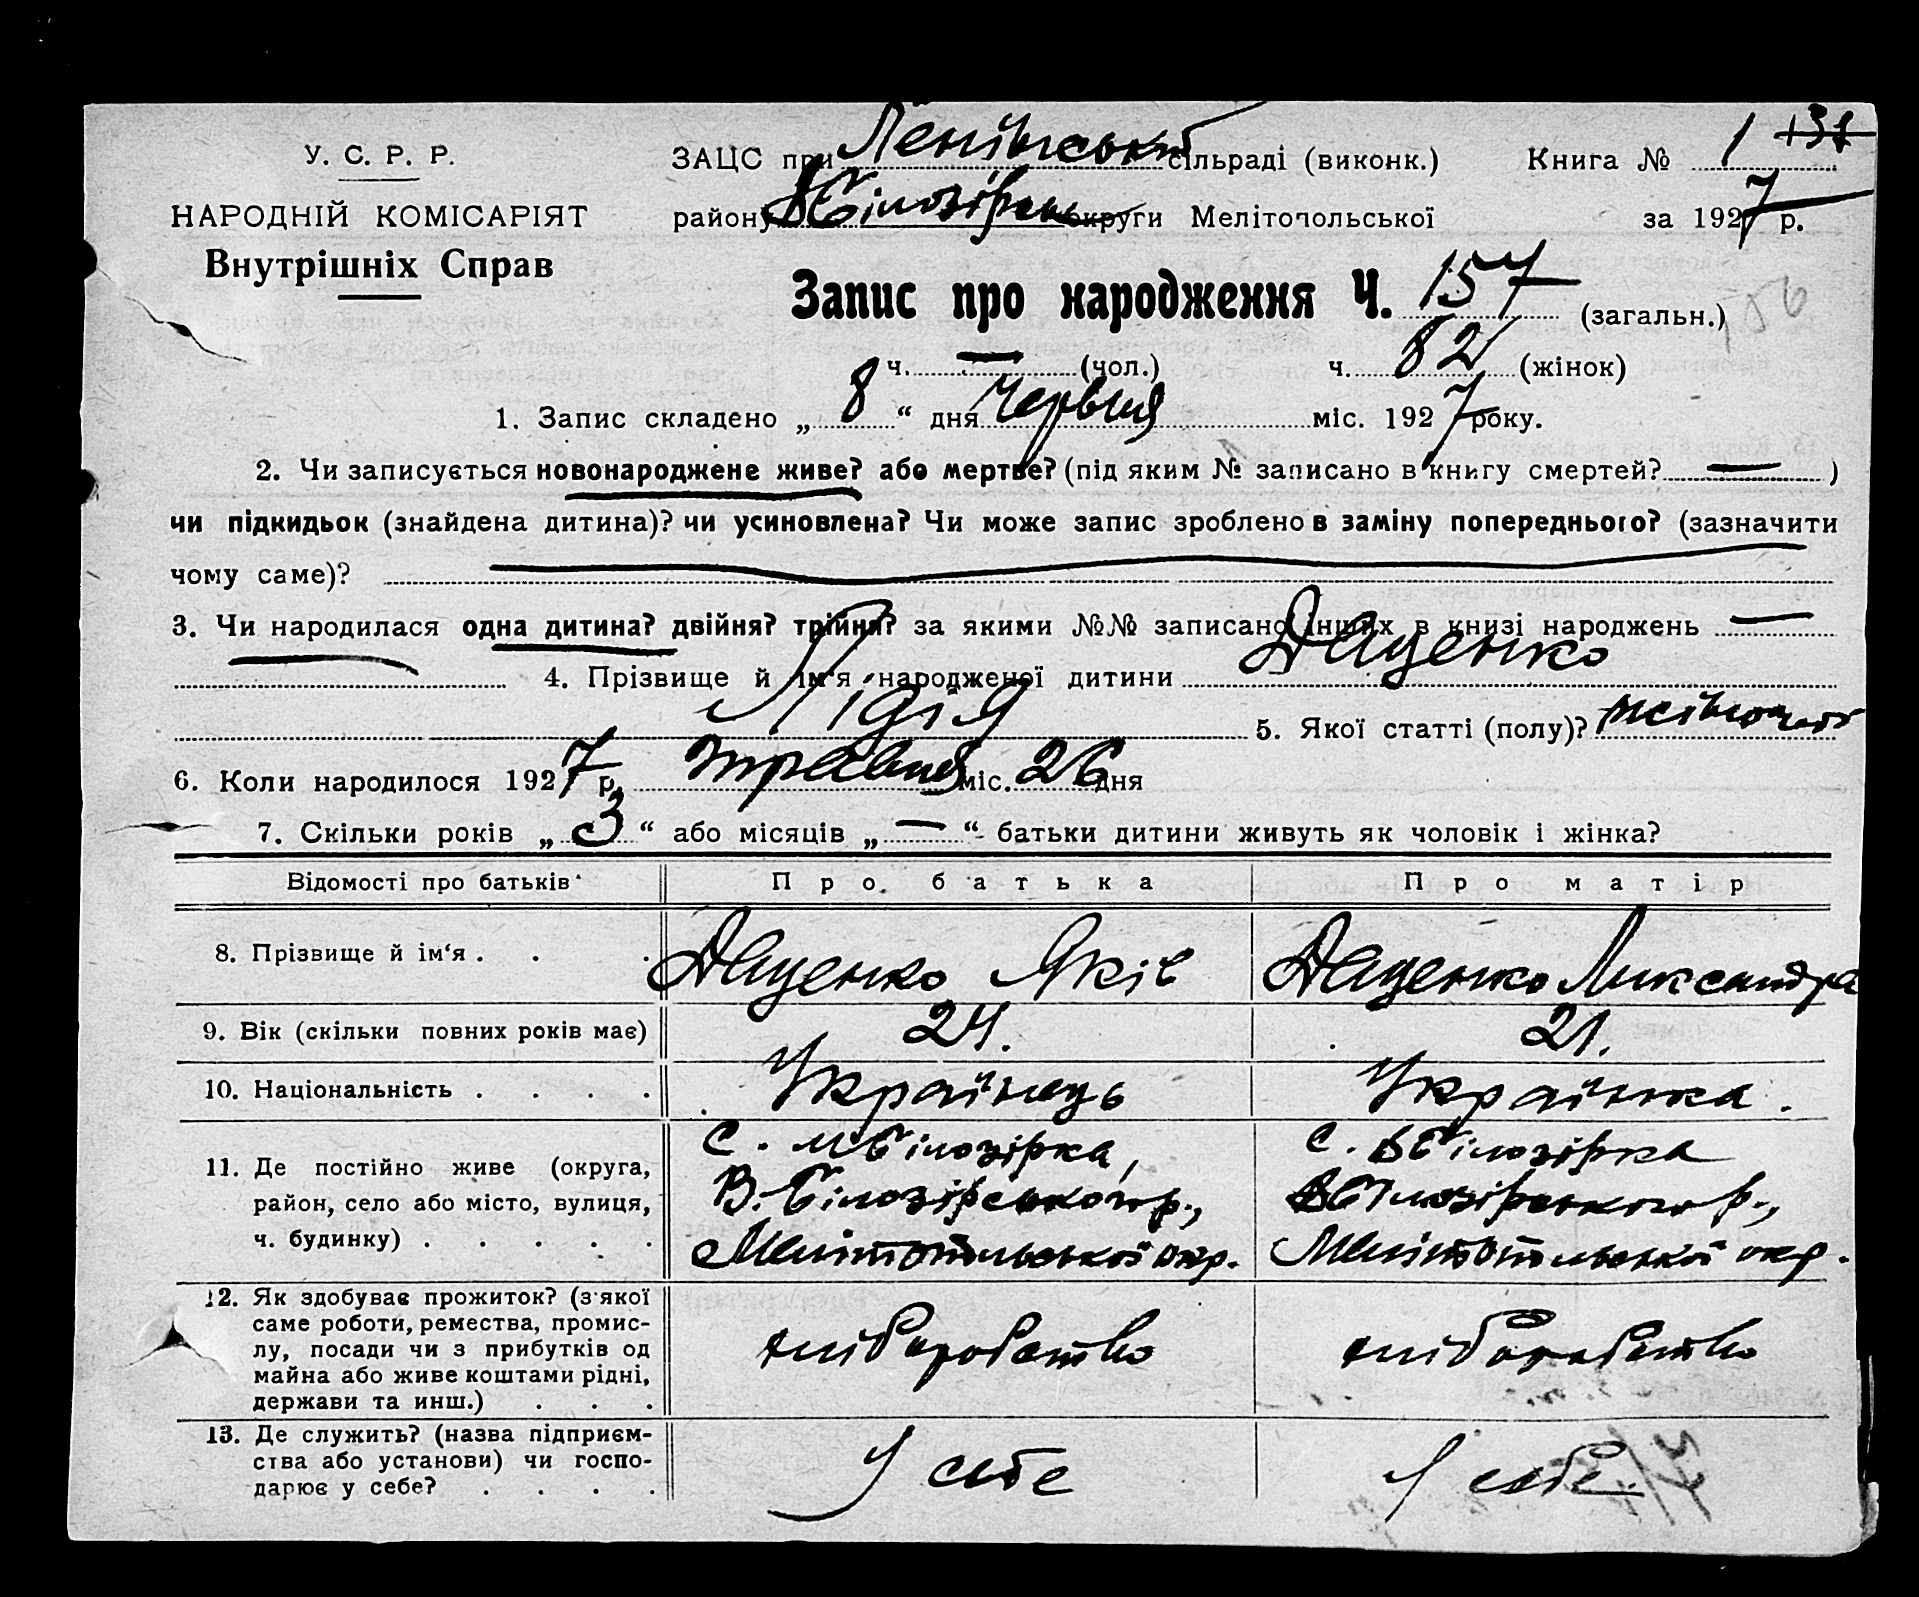 У. С. Р. Р.
НАРОДНІЙ КОМІСАРІЯТ
Внутрішніх Справ
ЗАЦС при Ленінській сільраді (виконк.) Книга № 1 137
району В Білозірськ округи Мелітопольської за 1927 р.
Запис про народження Ч. 157 (загальн.) 156
ч. — (чол.) ч. 82 (жінок)
1. Запис складено „ 8 “ дня червня міс. 1927 року.
2. Чи записується новонароджене живе? або мертве? (під яким № записано в книгу смертей? — )
чи підкидьок (знайдена дитина)? чи усиновлена? Чи може запис зроблено в заміну попереднього? (зазначити
чому саме)?
3. Чи народилася одна дитина? двійня? трійня? за якими №№ записано инших в книзі народжень —
4. Прізвище й ім'я народженої дитини Даценко
Лідія 5. Якої статті (полу)? жіночої
6. Коли народилося 1927 р. травня міс. 26 дня
7. Скільки років „ 3 “ або місяців „ — “ батьки дитини живуть як чоловік і жінка?
Відомості про батьків Про батька Про матір
8. Прізвище й ім'я . . . Даценко Яків Даценко Ликсандра
9. Вік (скільки повних років має) 24. 21.
10. Національність . . . . Українець Українка.
11. Де постійно живе (округа,
район, село або місто, вулиця,
ч. будинку) . . . . .
С. М Білозірка,
В.-Білозірського р.,
Мелітопольської окр.
С. В Білозірка
В Білозірського р.,
Мелітопольської окр.
12. Як здобуває прожиток? (з якої
саме роботи, ремества, промис-
лу, посади чи з прибутків од
майна або живе коштами рідні,
держави та инш.) . . .
хліборобство хліборобство
13. Де служить? (назва підприєм-
ства або установи) чи госпо-
дарює у себе? . . . .
У себе У себе.